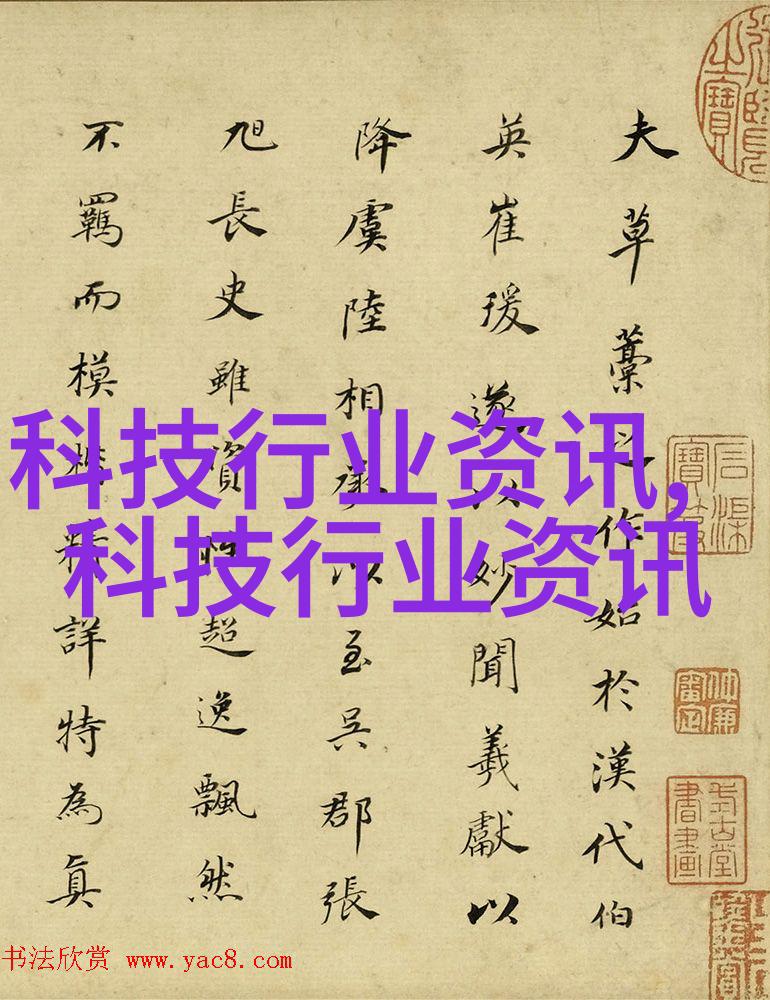 夫草藁之作始於漢代伯
英崔瑗遂以妙聞羲獻以
降虞陸相承以至吳郡張
旭長史雖資性超逸飄然
不羈而模楷精詳特為真
科技行业资讯,
科技行业资讯
石渠寶笈
书法欣赏 www.yac8.com